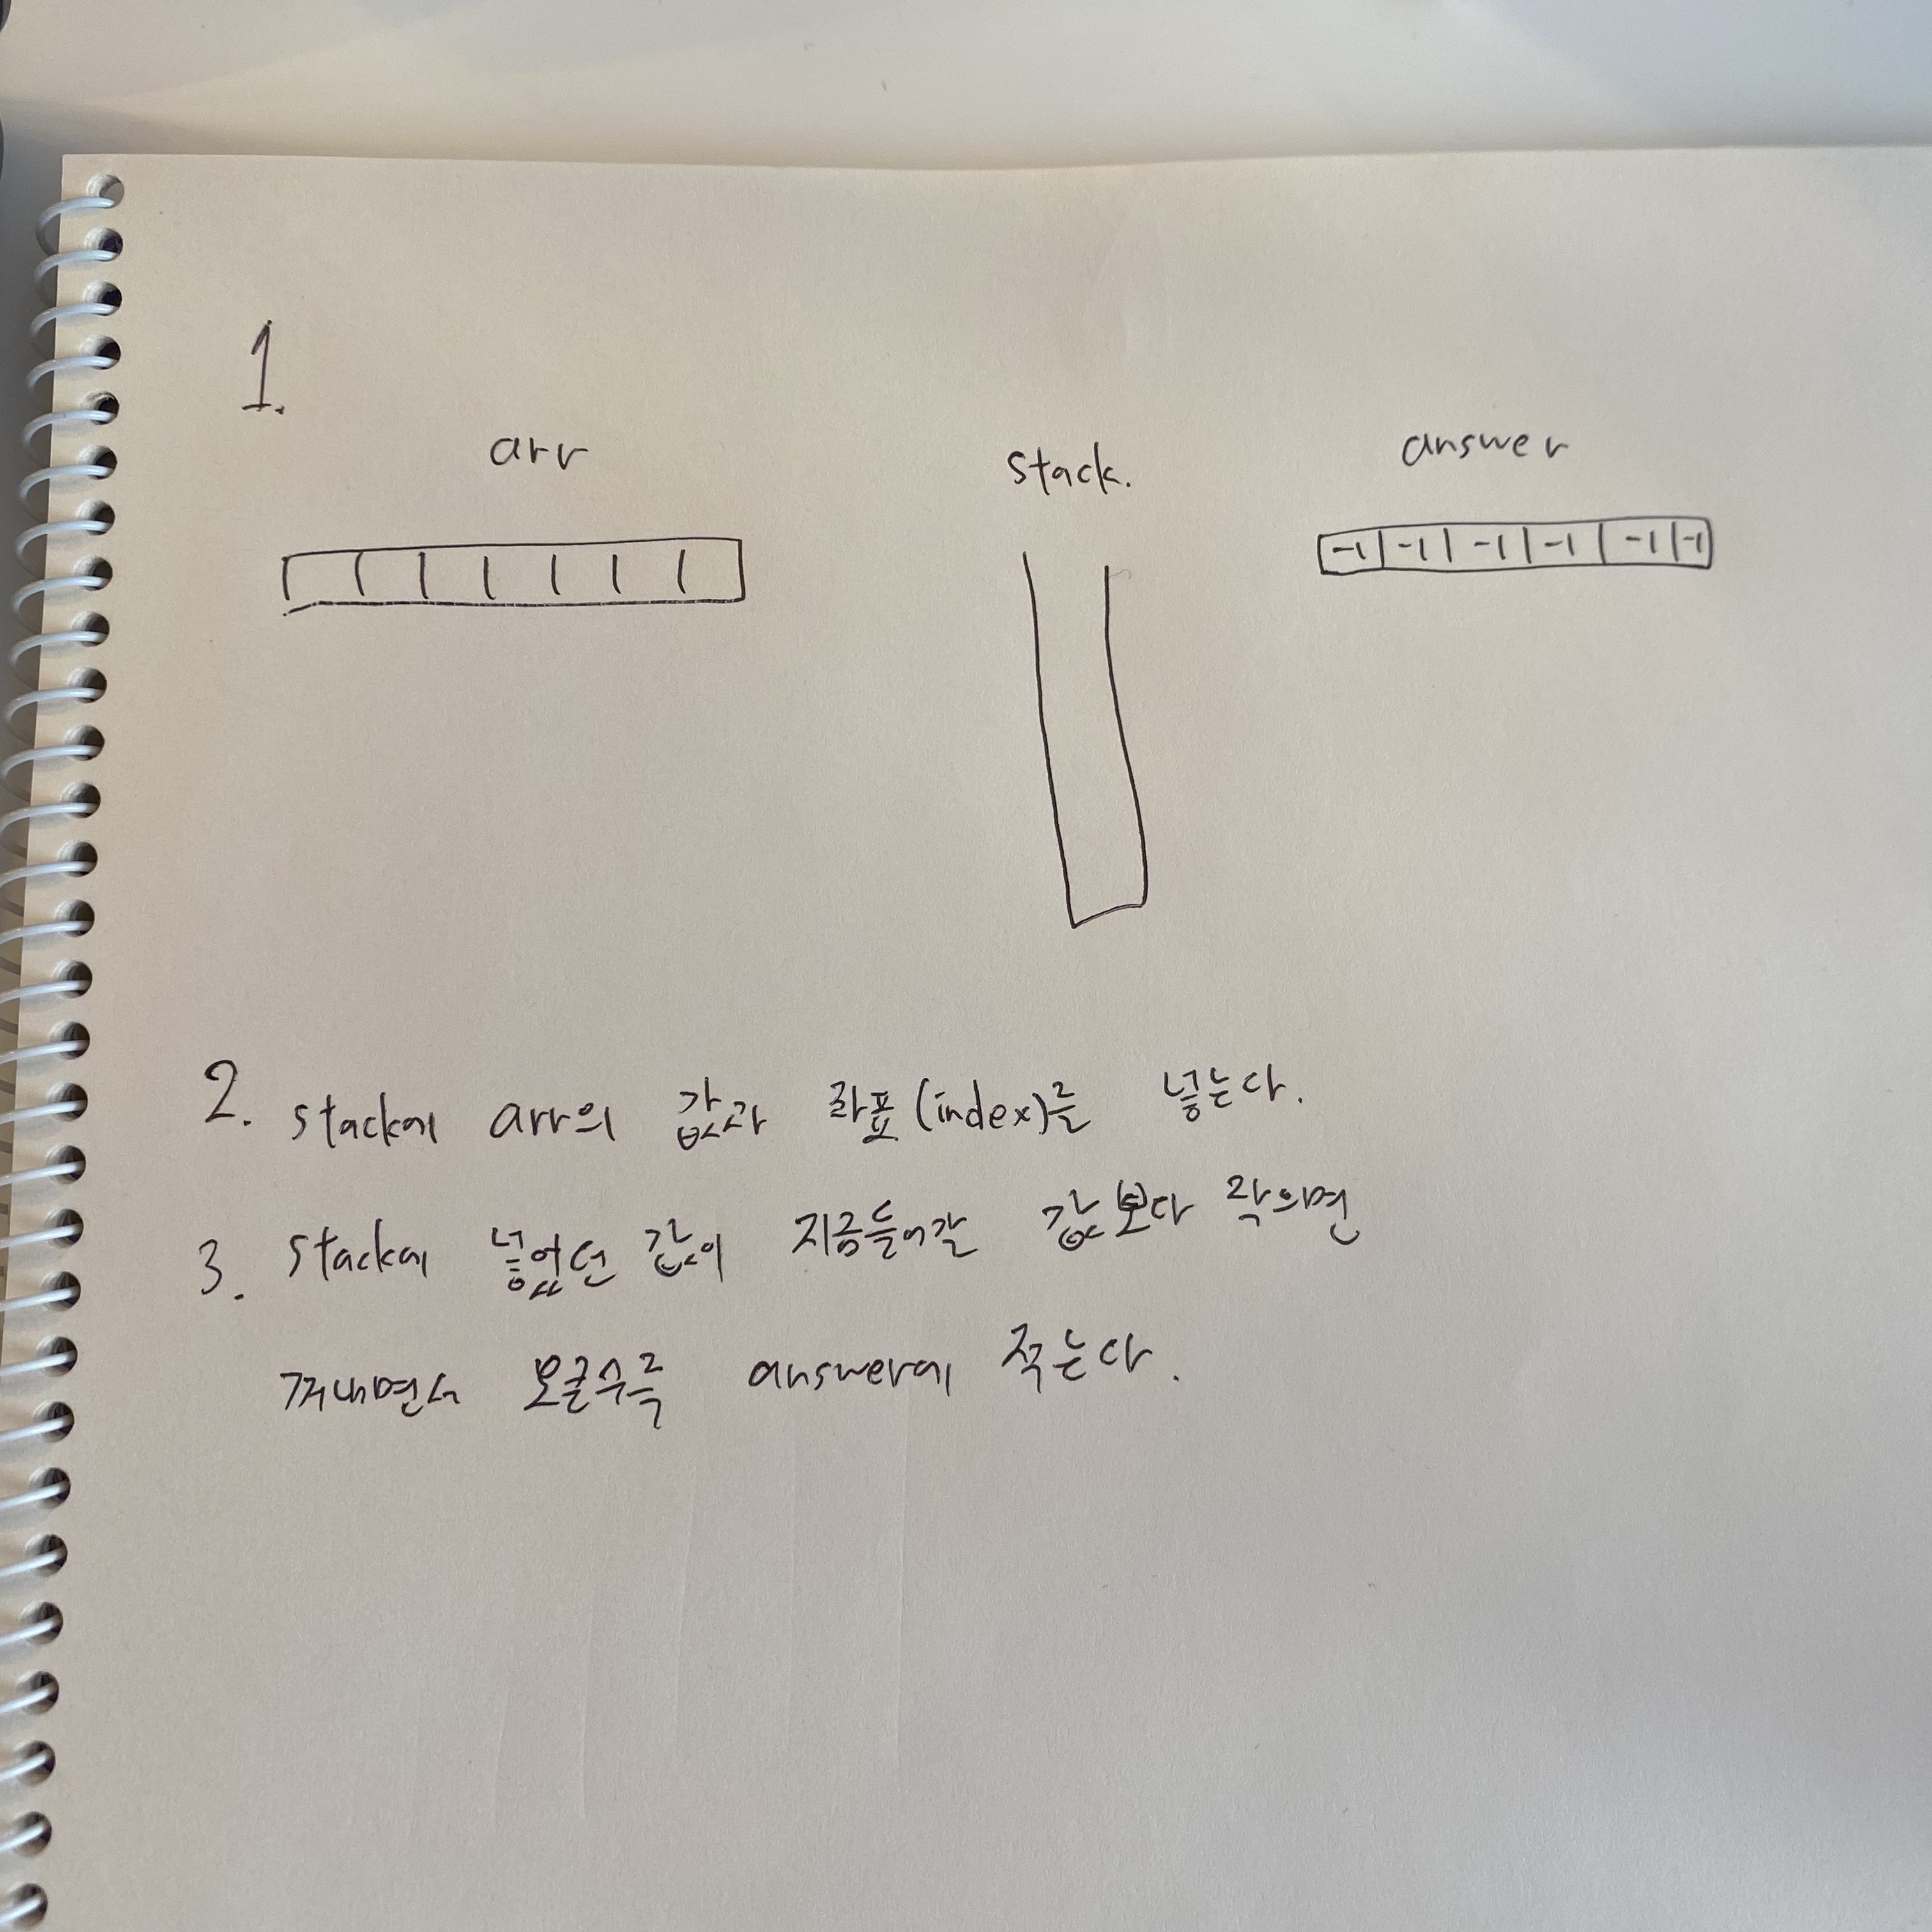 1.
arr stack. answer
-1 -1 -1 -1 -1 -1
2. stack에 arr의 값과 좌표(index)를 넣는다.
3. stack에 넣었던 값이 지금들어갈 값보다 작으면
꺼내면서 오큰수를 answer에 적는다.